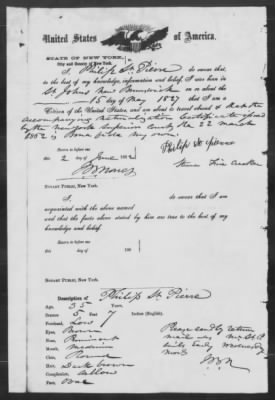 United States of America.
STATE OF NEW YORK,
City and County of New York.
I, Philip St. Pierre do swear that,
to the best of my knowledge, information and belief I was born in
St. Johns New Brunswick on or about the
15 day of May 1827 that I am a
Citizen of the United States, and am about to travel abroad & that the
accompanying naturalization Certificate issued
by the New York Superior Court, the 22 March
1852 is bona fide my own.
Sworn to before me
this 2 day of June 186
Philip St Pierre
NOTARY PUBLIC, New York.
I, do swear that I am
acquainted with the above named
and that the facts above stated by him are true to the best of my
knowledge and belief.
Sworn to before me
this day of 186
NOTARY PUBLIC, New York.
Description of Philip St. Pierre
Age, 35 Years
Stature 5 Feet 7 Inches (English).
Forehead, Low
Eyes,
Nose, Prominent
Mouth, Medium
Chin, Round
Hair, Dark brown
Complexion,
Face, Oval
Please send by return
mail